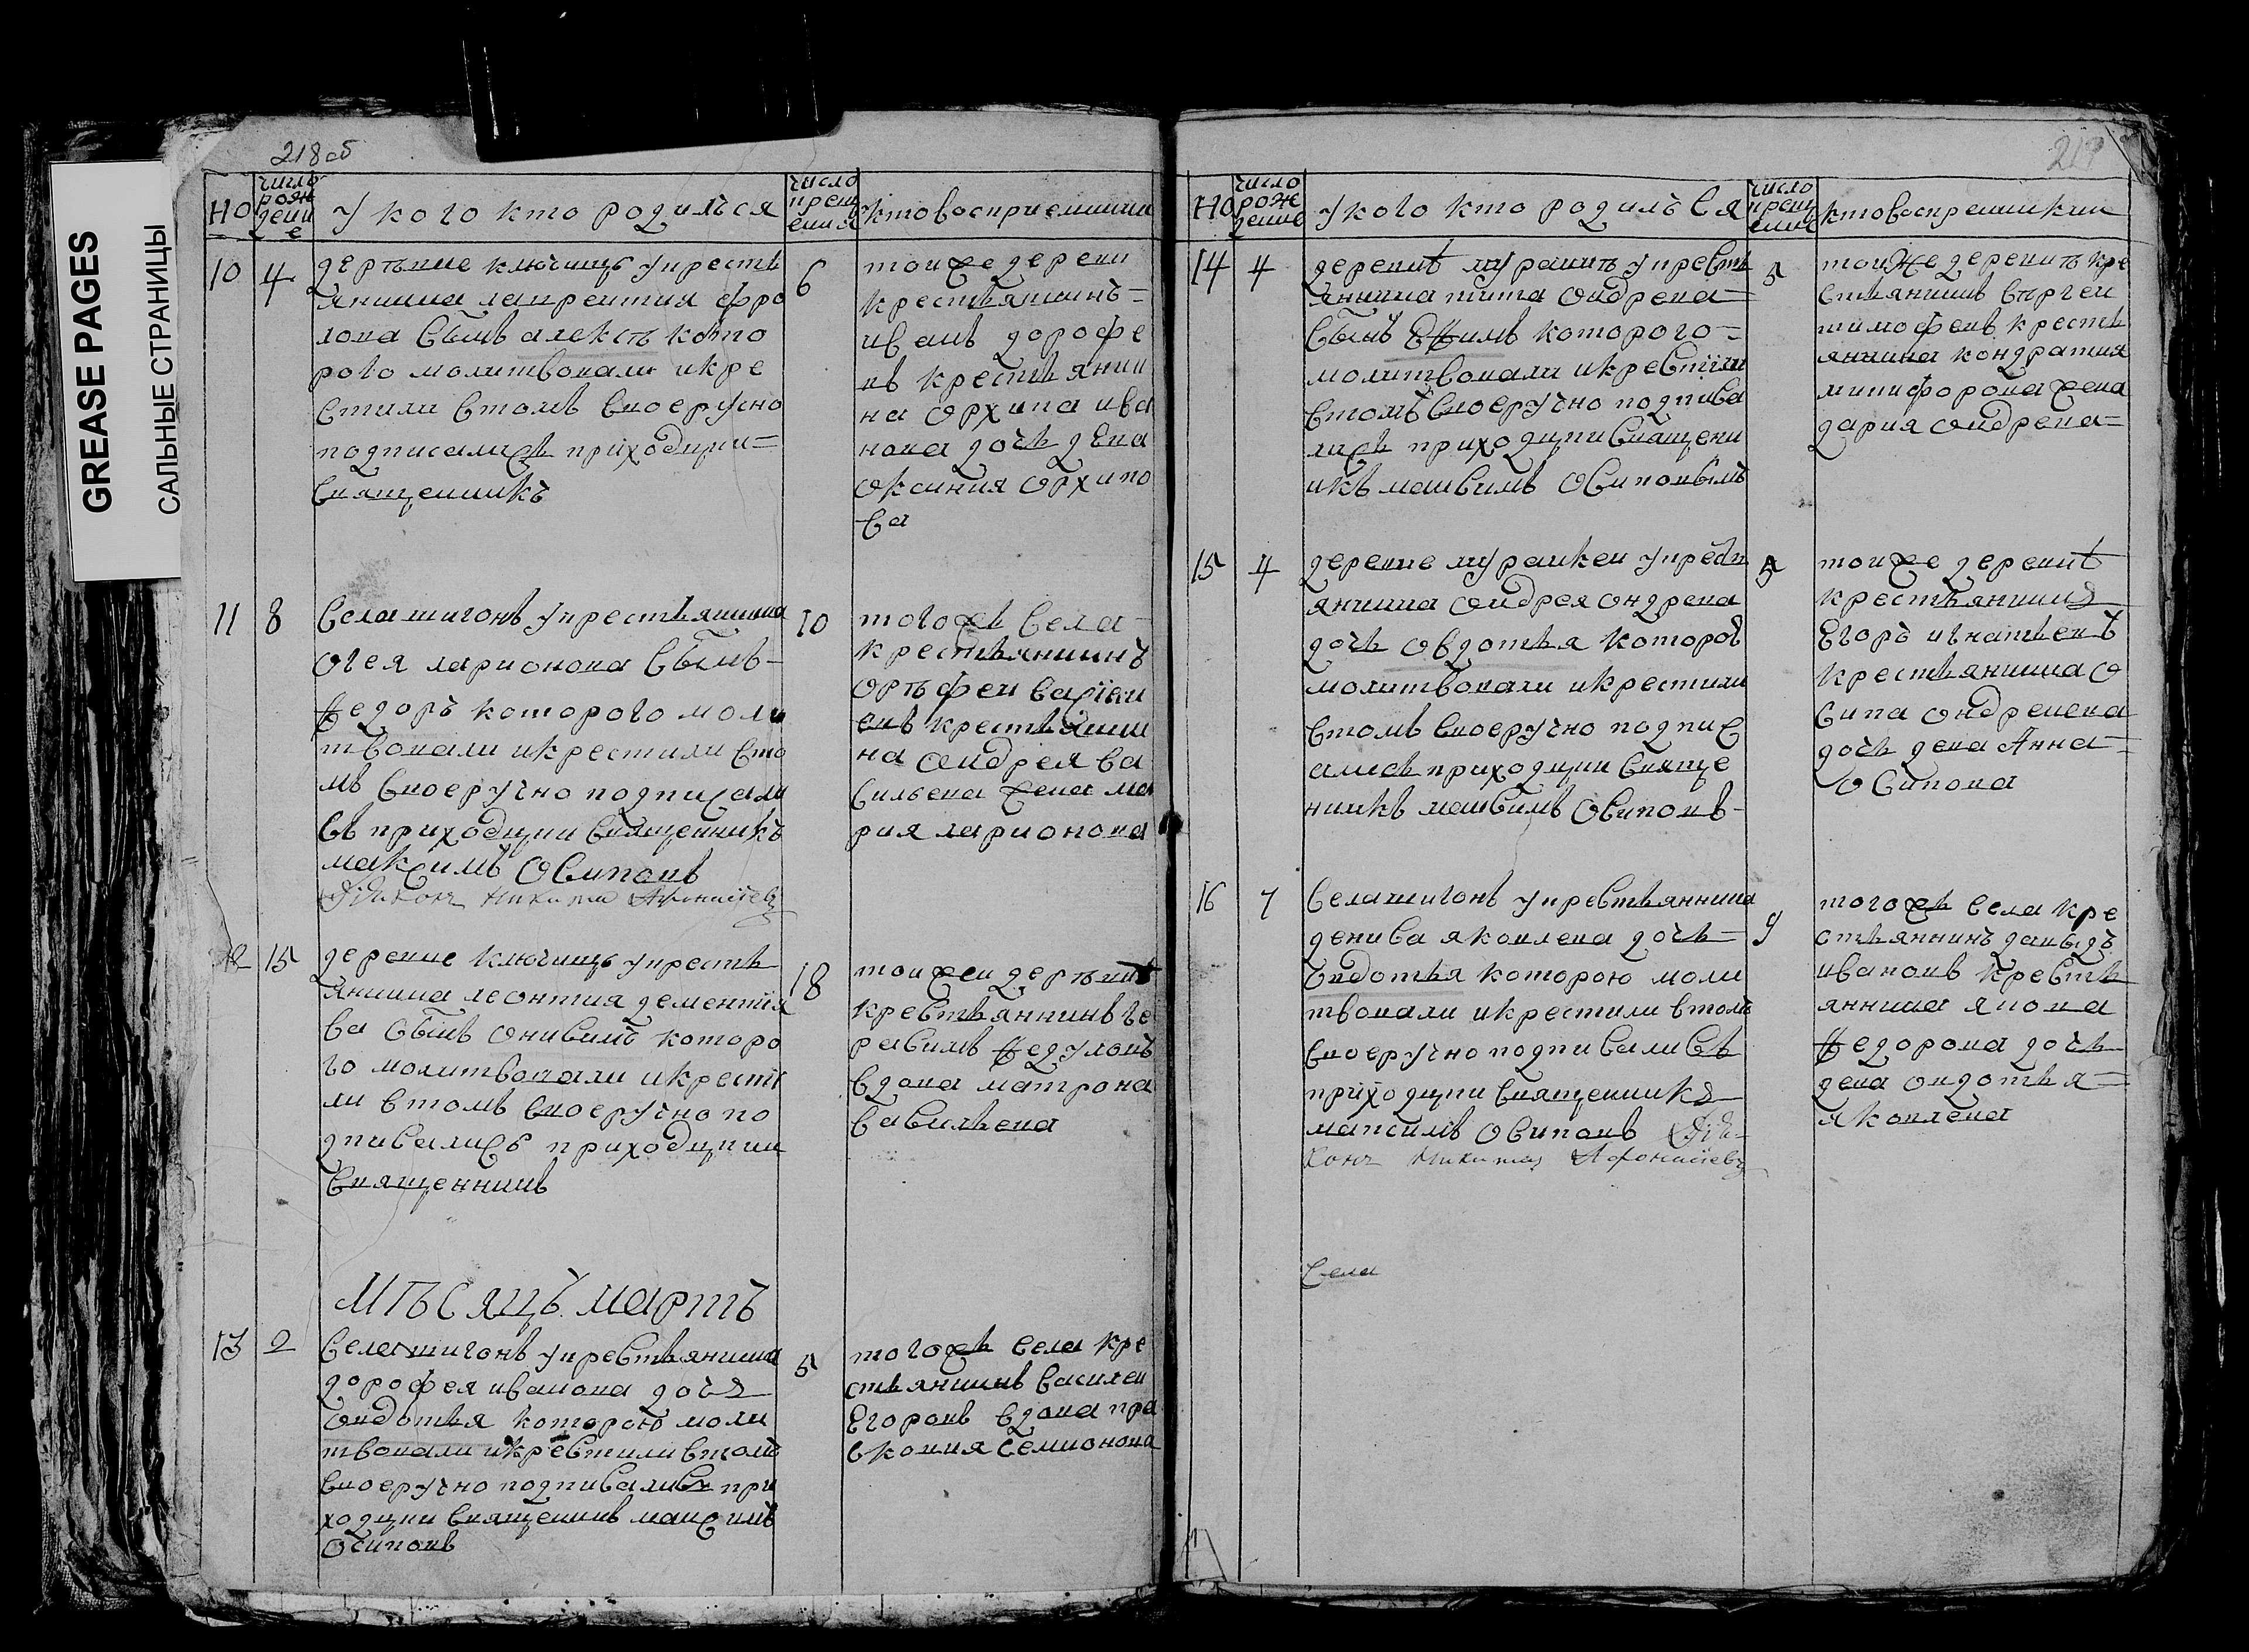 GREASE PAGES
САЛЬНЫЕ СТРАНИЦЫ
218об
НО
число рождение
У кого кто родился
число крещения
кто восприемники
10 4
дерѣвне ключищь укрестъ
янина лаврентия фро
лова сынъ алексѣ кото
рого молитвовали икре
стили втомъ своеручно
подписались приходцки=
священникъ
6
тоиже деревни
крестьянинъ=
иванъ дорофе
въ крестьянин
на Орхипа ива
нова дочь дѣвка
Оксиния Орхипо
ва
11 8
села шигонъ укрестьянина
огея ларионова сынъ-
Федоръ которого моли
твовали икрестили вто
мъ своеручно подписали
съ приходцки священникъ
максимъ Осиповъ
Дiаконъ Никита Афонасiевъ
10
тогожъ села
крестьянинъ
Орѣфеи васiли
евъ крестьяни
на Оидрея ва
сильева жена ма
рия ларионова
12 15
деревне ключищь укрестъ
янина леонтия дементiя
ва сынъ Онисимъ которо
го молитвовали икрестi
ли втомъ своеручно по
дписались приходцкии
священникъ
18
тоижеи дерѣвнѣ
крестьяннинъ ге
расимъ Федуловъ
вдова матрона
васильева
МѢСЯЦЪ МАРТЪ
13 2
села шигонъ укрестьянина
дорофея иванова дочъ
овдотья которою моли
твовали икрестили втомъ
своеручно подписалисъ при
ходцки священикъ максимъ
Осиповъ
5
тогожъ села кре
стьянинъ василеи
Егоровъ вдова пра
сковия семионова
219
НО
число рождение
У кого кто родилъся
число крещение
кто воспреимники
14 4
деревнѣ муранкѣ укрестъ
янина тита Оидрева=
сынъ Ефимъ которого=
молитвовали икрестiли
втомъ своеручно подписа
лись приходцки священи
икъ максимъ Осиповымъ
5
тоиже деревнѣ кре
стьянинъ сѣргеи
тимофеивъ крестъ
янина кондратия
никифорова жена
дария Оидрева=
15 4
деревне муранкеи укрестъ
янина Оидрея ондрева
дочь Овдотья которою
молитвовали икрестили
втомъ своеручно подпис
алисъ приходцки свяще
никъ максимъ Осиповъ-
5
тоиже деревнѣ
крестьянинъ
Егоръ игнатьевъ
крестьянина О
сипа ондреева
дочь дѣвка Анна=
Осипова
16 7
села шигонъ укрестьяннина
дениса яковлева дочь=
Овдотья которою моли
твовали икрестили втомъ
своеручно подписалисъ
приходцки священникъ
максимъ Осиповъ Дiа-
конъ Никита Афонасiевъ
9
тогожъ села кре
стьяннинъ давыдъ
ивановъ крестъ
яннина якова
Федорова дочь
девка овдотья=
яковлева
Села